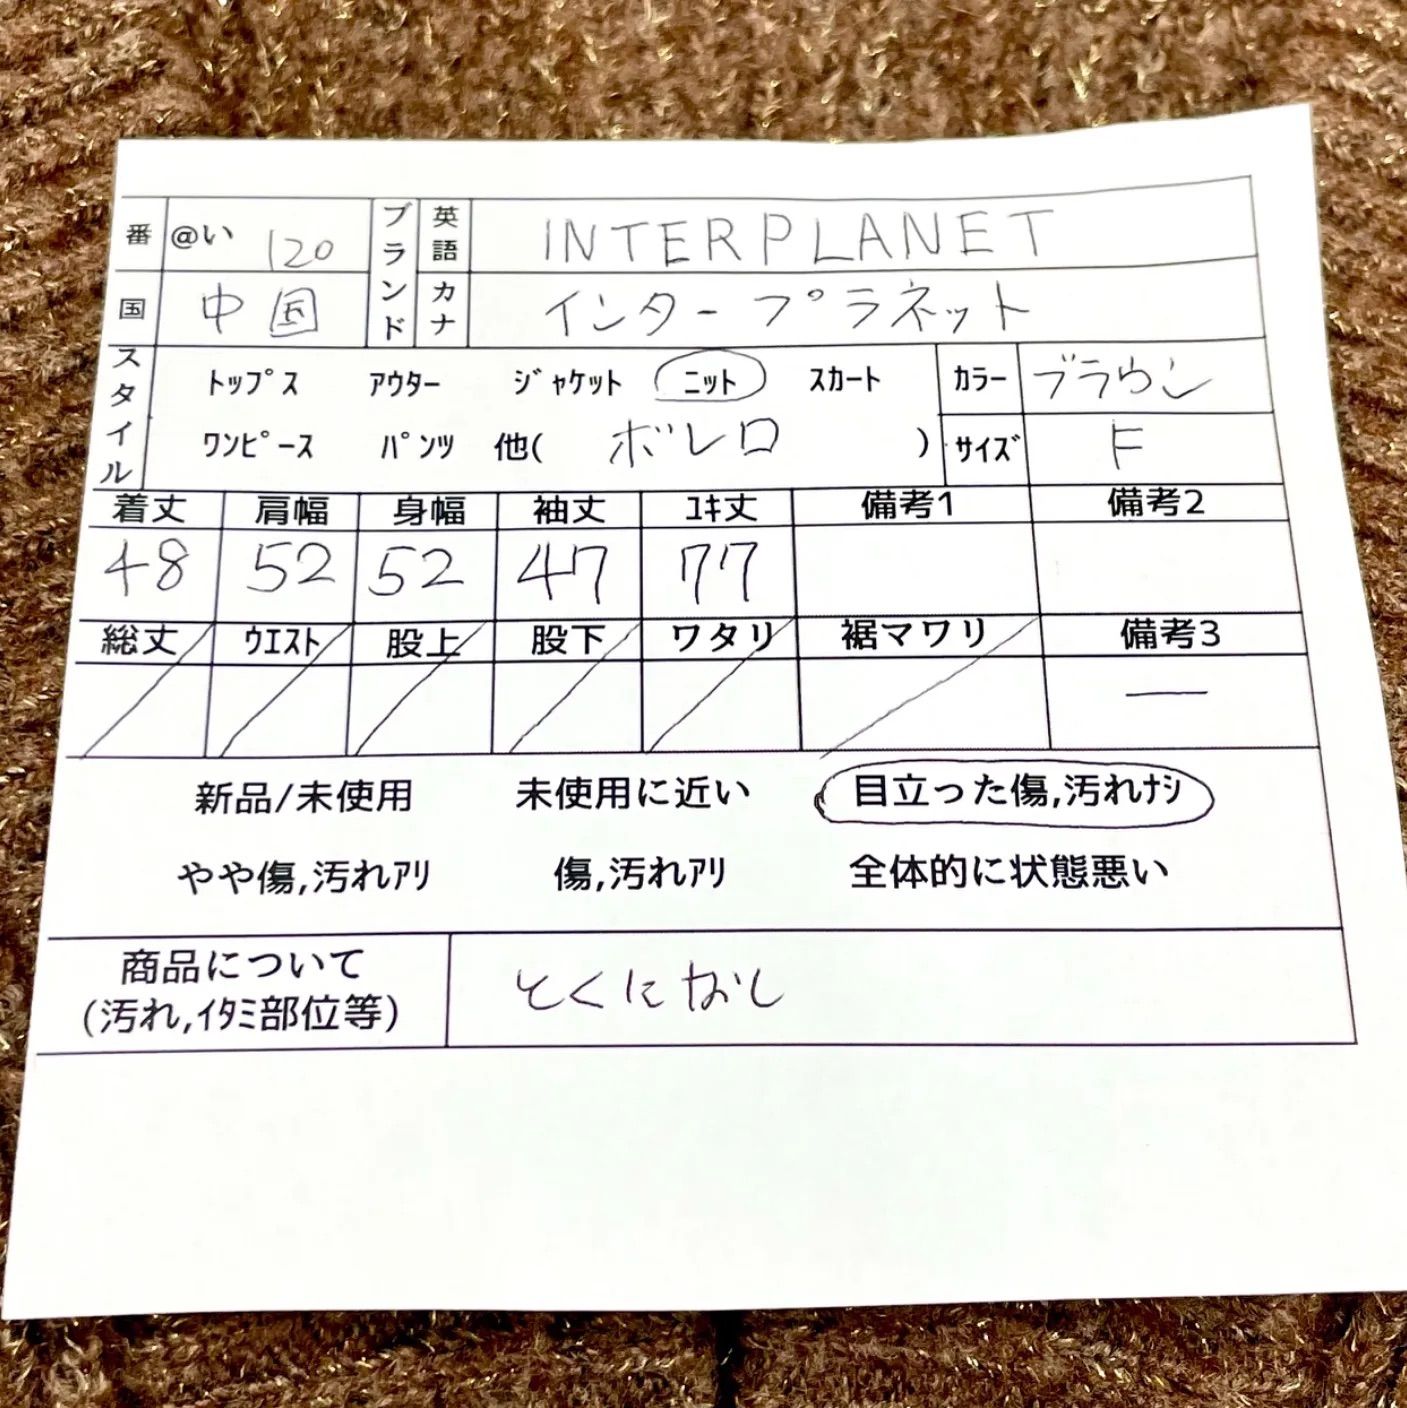 番 @い 120 ブランド 英語 INTERPLANET
国 中国 カナ インタープラネット
スタイル トップス アウター ジャケット ニット スカート カラー ブラウン
ワンピース パンツ 他( ボレロ ) サイズ F
着丈 肩幅 身幅 袖丈 ユキ丈 備考1 備考2
48 52 52 47 77
総丈 ウエスト 股上 股下 ワタリ 裾マワリ 備考3
―
新品/未使用 未使用に近い 目立った傷,汚れナシ
やや傷,汚れアリ 傷,汚れアリ 全体的に状態悪い
商品について とくになし
(汚れ,イタミ部位等)